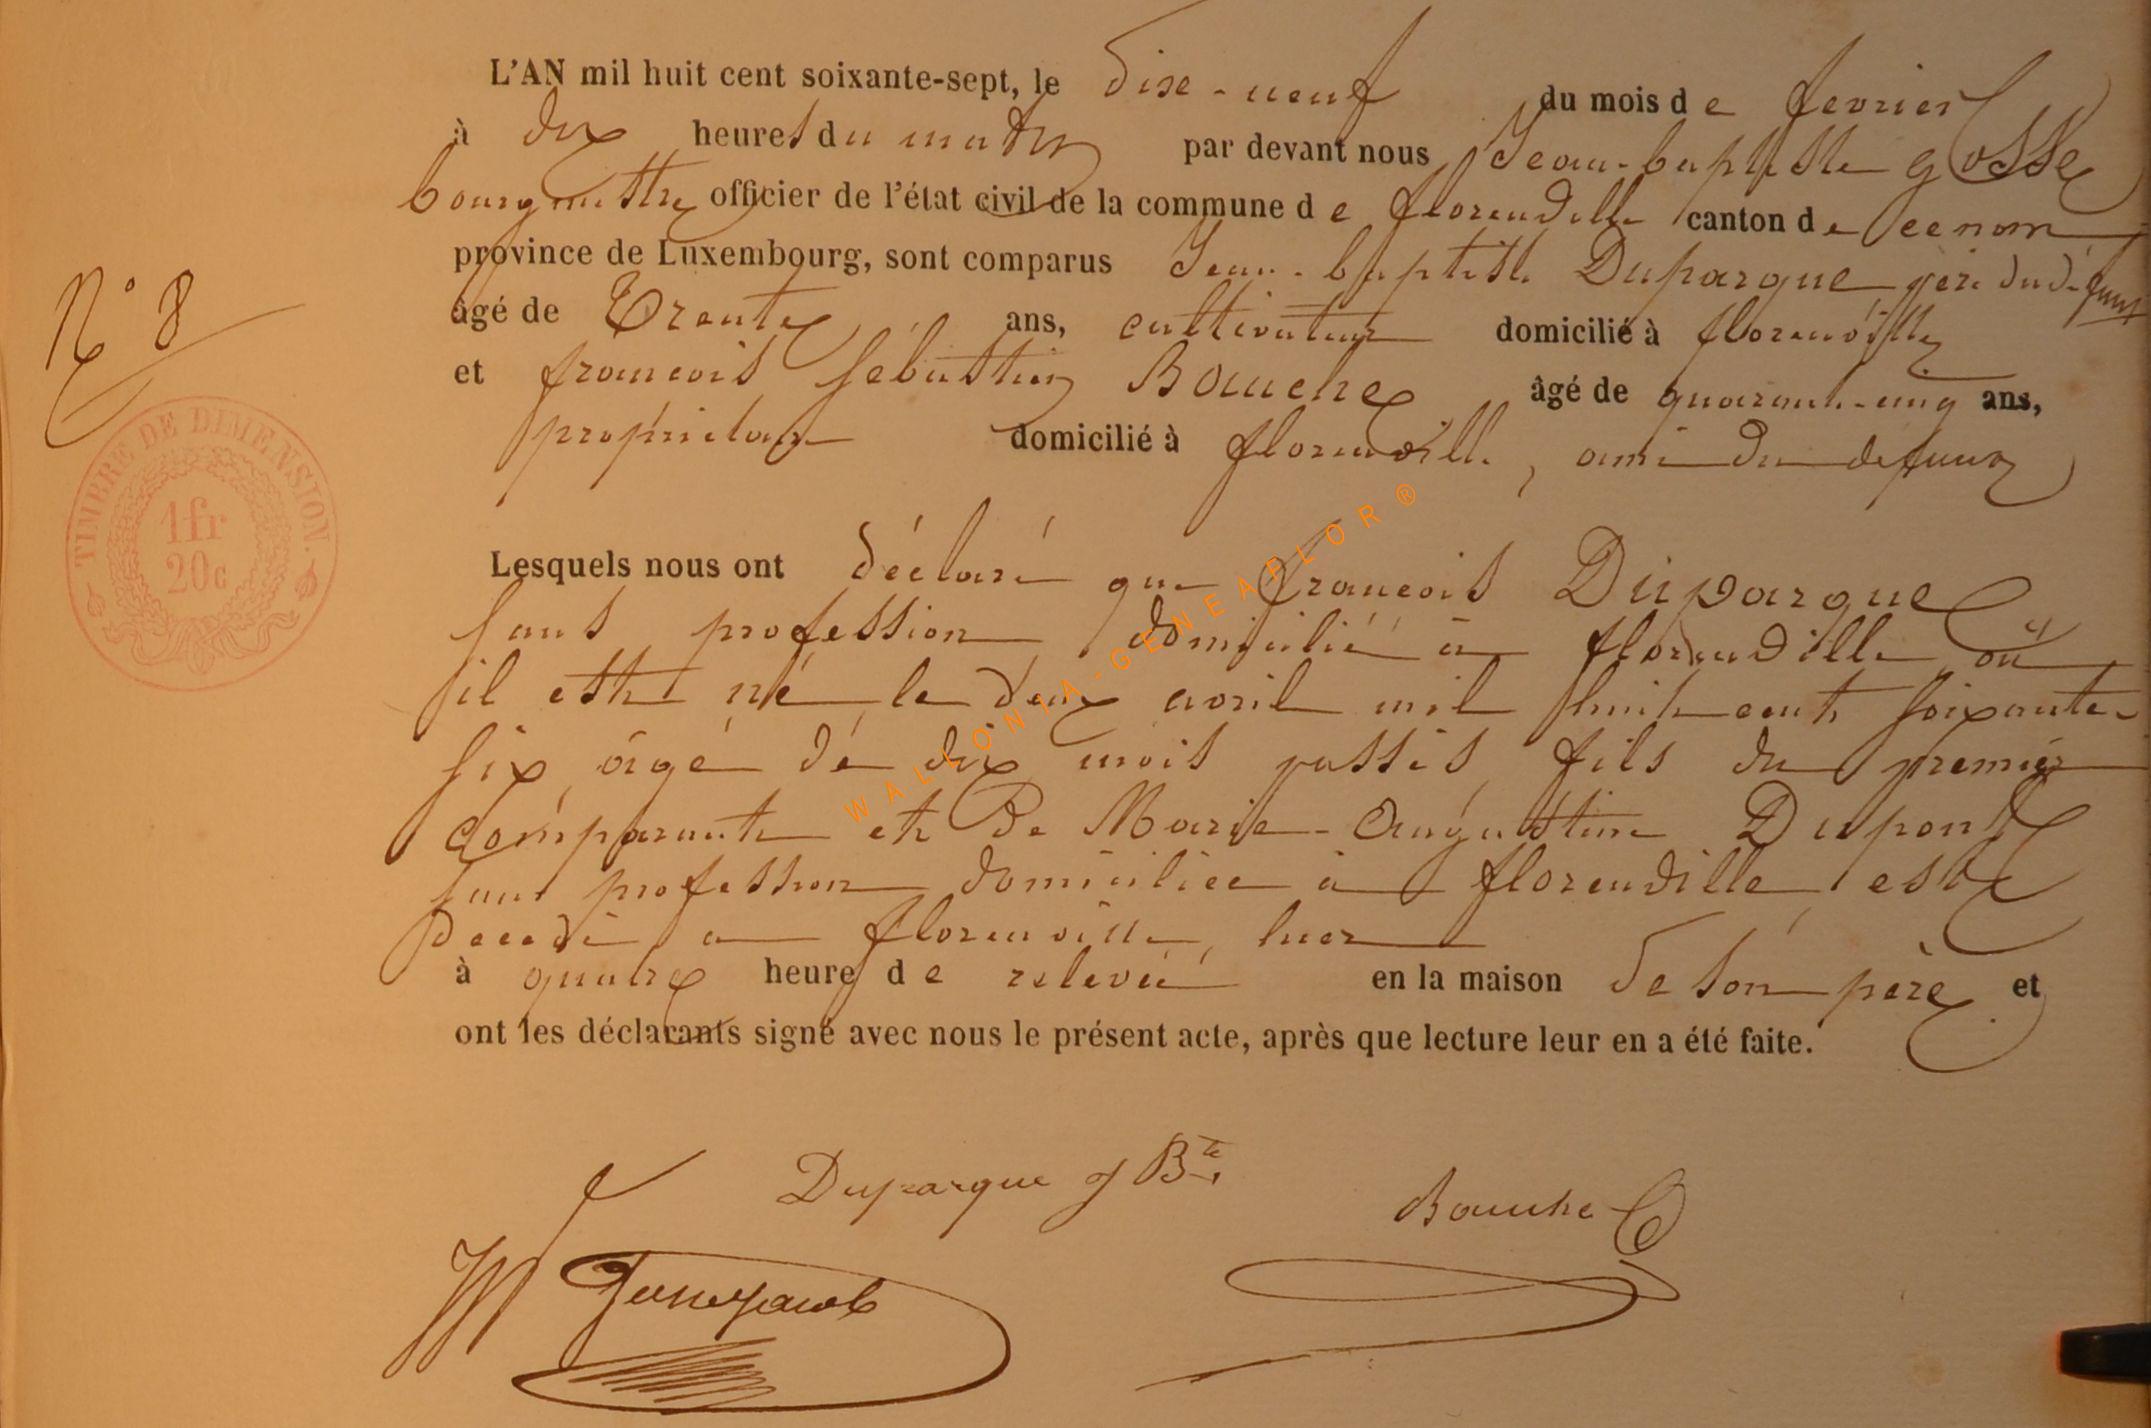 L'AN mil huit cent soixante-sept, le dixe-neuf du mois de fevrier
à dix heures du matin par devant nous Jean-baptiste gosse
bourgmestre officier de l'état civil de la commune de florenville canton de ce nom
province de Luxembourg, sont comparus Jean-baptiste Duparque père du défunt
âgé de Trente ans, cultivateur domicilié à florenville
et françois sébastien Bauche âgé de quarante-cinq ans,
propriétaire domicilié à florenville, ami du defunt
N° 8
TIMBRE DE DIMENSION.
1fr
20c
Lesquels nous ont déclaré que françois Duparque
sans profession domicilié à florenville où
il est né le deux avril mil huit cent soixante-
six âgé dé dix mois passés fils du premier
comparant et de Marie-Augustine Dupont
sans profession domiciliée à florenville est
décédé a florenville hier
à quatre heure de relevée en la maison de son père et
ont les déclarants signé avec nous le présent acte, après que lecture leur en a été faite.
WALLONIA-GENEAFLOR®
Duparque j Bte
Bauche